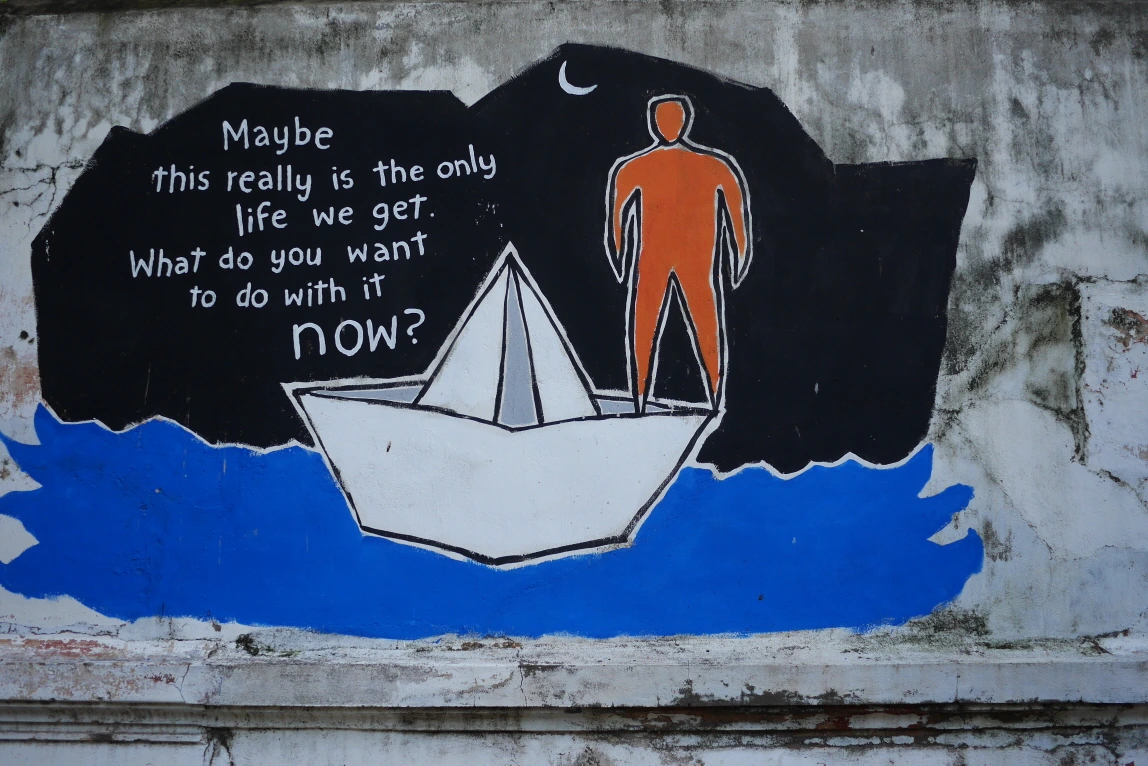 Maybe
this really is the only
life we get.
What do you want
to do with it
now?